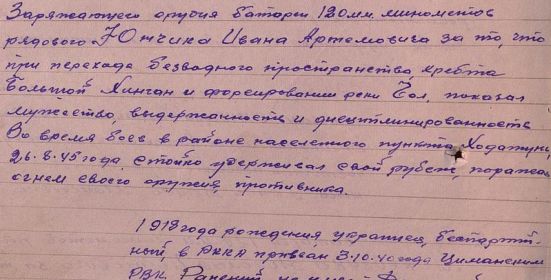 Заряжающего орудия батареи 120 мм. минометов
рядового Юнчика Ивана Артемовича за то, что
при переходе безводного пространства, хребта
Большой Хинган и форсировании реки Гол, показал
мужество, выдержанность и дисциплинированность
Во время боев в районе населенного пункта
26.8.45 года стойко удерживал свой рубеж, поражая
огнем своего оружия, противника.
1918 года рождения украинец, беспартий-
ный, в РККА призван 3.10.40 года Циманским
РВК Ранений не имеет